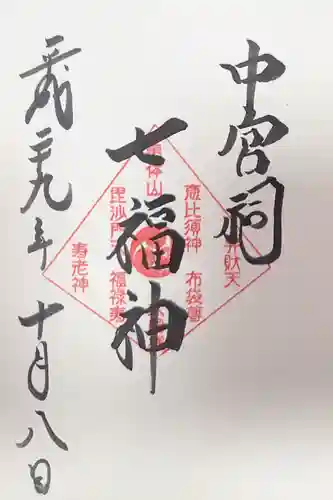 中宮祠
七福神
平成二十九年十月八日
弁財天
恵比須神
布袋尊
毘沙門天
福禄寿
寿老神